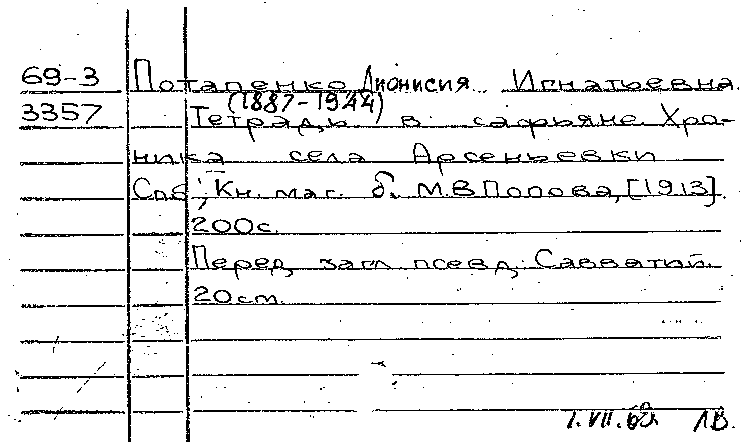 69-3 Потапенко Дионисия Игнатьевна
(1887-1944)
3357 Тетрадь в сафьяне. Хра-
ника села Арсеньевки
Спб., Кн. маг. б. М.В Попова, [1913].
200с.
Перед загл. псевд. Савватий.
20см.
1.VII.69 ЛВ.